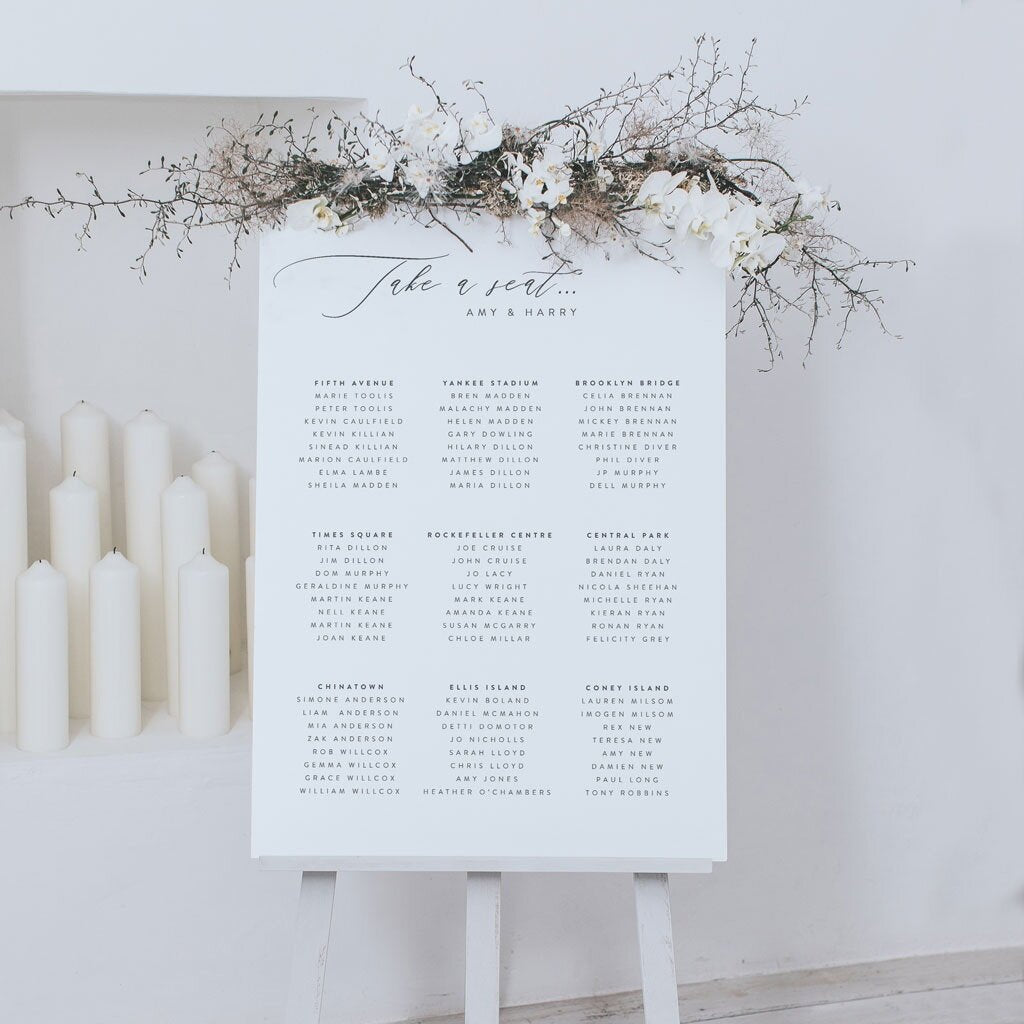 Take a seat...
AMY & HARRY
FIFTH AVENUE
MARIE TOOLIS
PETER TOOLIS
KEVIN CAULFIELD
KEVIN KILLIAN
SINEAD KILLIAN
MARION CAULFIELD
ELMA LAMBE
SHEILA MADDEN
YANKEE STADIUM
BREN MADDEN
MALACHY MADDEN
HELEN MADDEN
GARY DOWLING
HILARY DILLON
MATTHEW DILLON
JAMES DILLON
MARIA DILLON
BROOKLYN BRIDGE
CELIA BRENNAN
JOHN BRENNAN
MICKEY BRENNAN
MARIE BRENNAN
CHRISTINE DIVER
PHIL DIVER
JP MURPHY
DELL MURPHY
TIMES SQUARE
RITA DILLON
JIM DILLON
DOM MURPHY
GERALDINE MURPHY
MARTIN KEANE
NELL KEANE
MARTIN KEANE
JOAN KEANE
ROCKEFELLER CENTRE
JOE CRUISE
JOHN CRUISE
JO LACY
LUCY WRIGHT
MARK KEANE
AMANDA KEANE
SUSAN MCGARRY
CHLOE MILLAR
CENTRAL PARK
LAURA DALY
BRENDAN DALY
DANIEL RYAN
NICOLA SHEEHAN
MICHELLE RYAN
KIERAN RYAN
RONAN RYAN
FELICITY GREY
CHINATOWN
SIMONE ANDERSON
LIAM ANDERSON
MIA ANDERSON
ZAK ANDERSON
ROB WILLCOX
GEMMA WILLCOX
GRACE WILLCOX
WILLIAM WILLCOX
ELLIS ISLAND
KEVIN BOLAND
DANIEL MCMAHON
DETTI DOMOTOR
JO NICHOLLS
SARAH LLOYD
CHRIS LLOYD
AMY JONES
HEATHER O'CHAMBERS
CONEY ISLAND
LAUREN MILSOM
IMOGEN MILSOM
REX NEW
TERESA NEW
AMY NEW
DAMIEN NEW
PAUL LONG
TONY ROBBINS